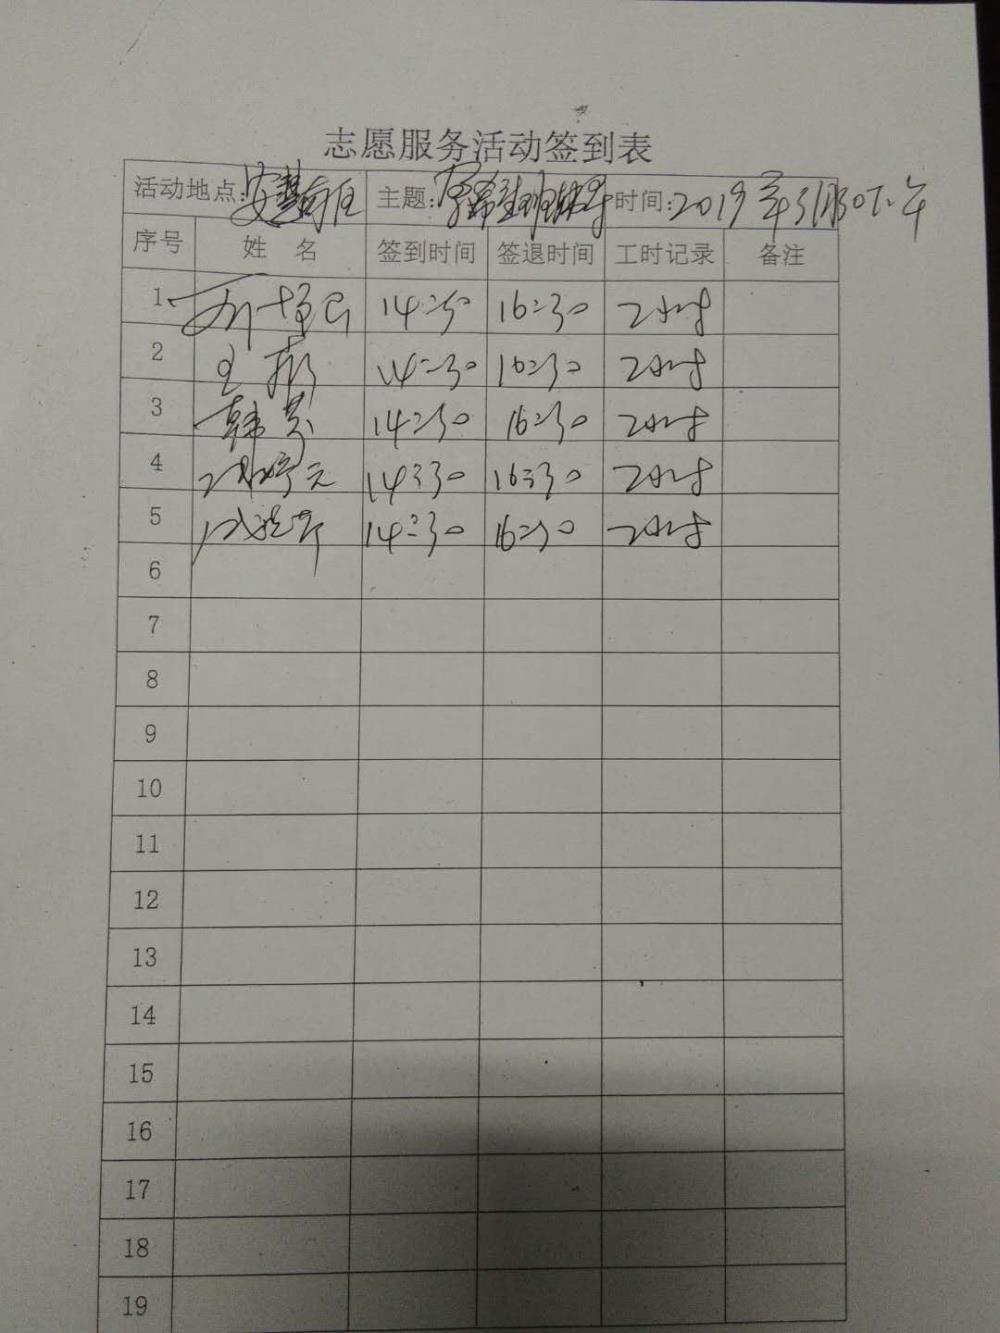 志愿服务活动签到表
活动地点: 安慧 主题: 时间: 2019年3月30下午
序号 姓 名 签到时间 签退时间 工时记录 备注
1 14:30 16:30 2小时
2 王 14:30 16:30 2小时
3 韩芬 14:30 16:30 2小时
4 14:30 16:30 2小时
5 14:30 16:30 2小时
6
7
8
9
10
11
12
13
14
15
16
17
18
19